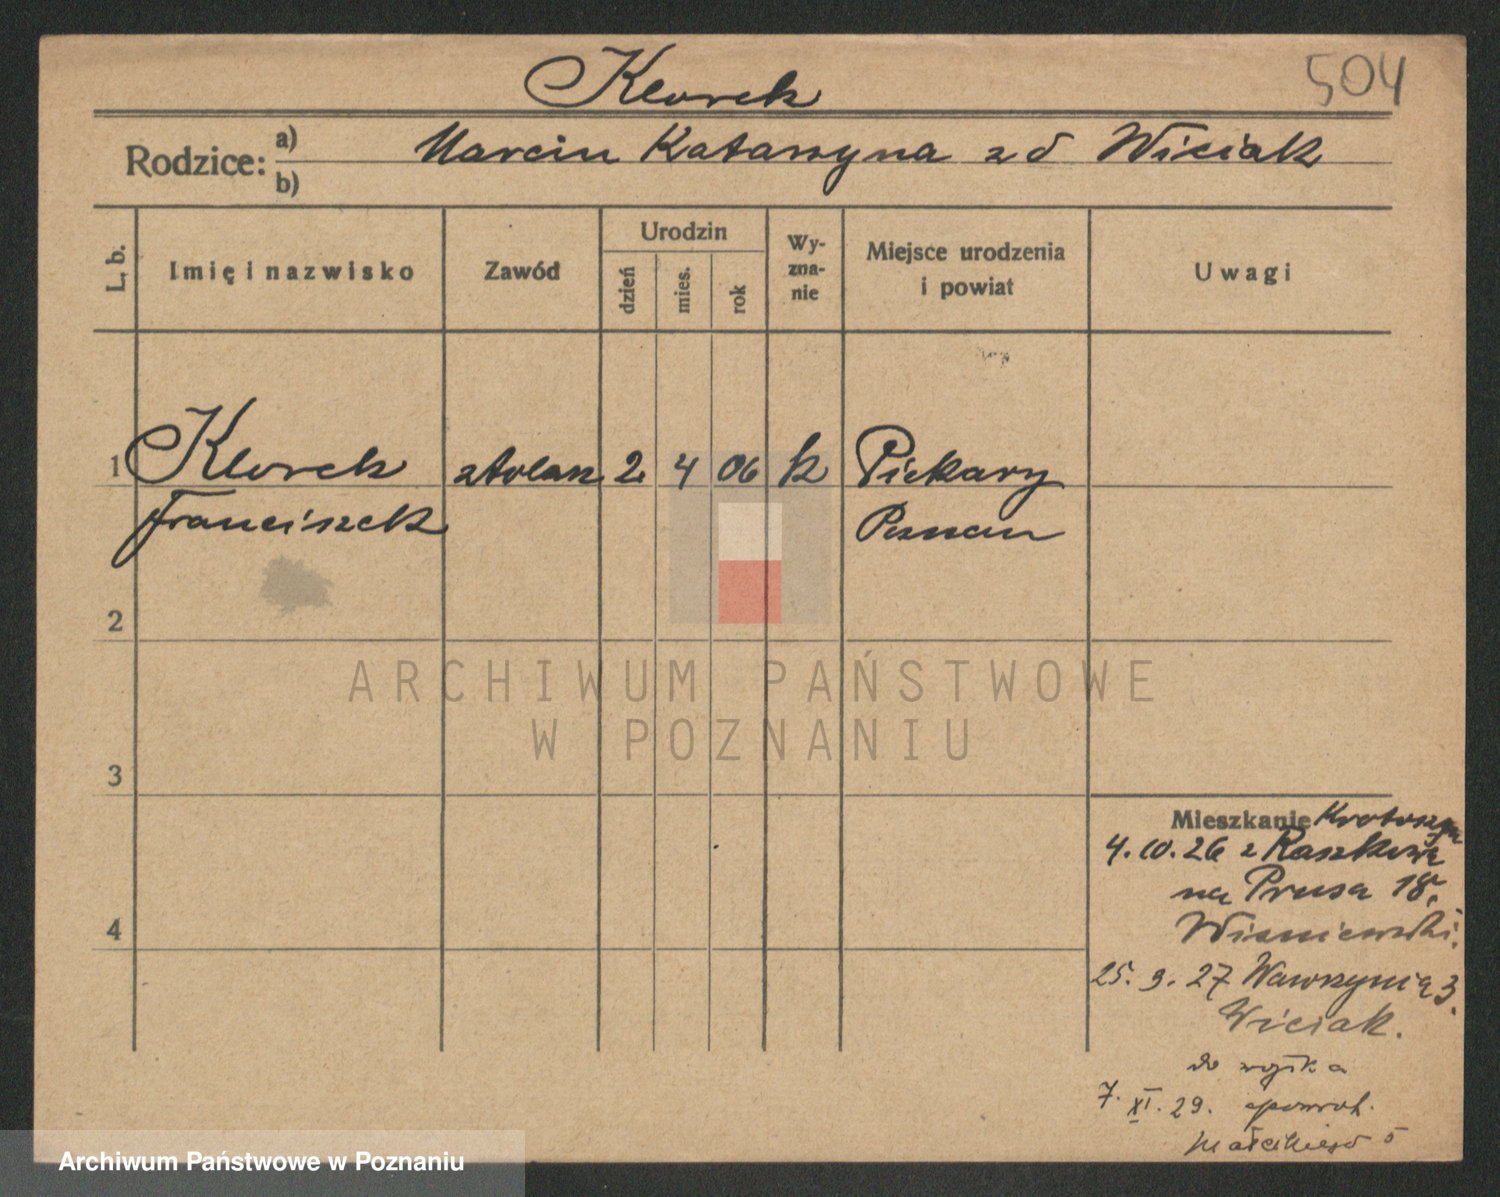 Klorek
504
Rodzice: a) Marcin Katarzyna z d Wiciak
b)
L. b.
Imię i nazwisko
Zawód
Urodzin
dzień
mies.
rok
Wy-
zna-
nie
Miejsce urodzenia
i powiat
Uwagi
1 Klorek stolarz 2 4 06 k Piekary
Franciszek Poznan
2
ARCHIWUM PAŃSTWOWE
W POZNANIU
3
Mieszkanie Krotoszyn
4.10.26 z Raszkowa
na Prusa 18.
4
Wisniewski.
25.9.27 Wawrzynia 3.
Wiciak.
do wojska
7. XI. 29. spowrot.
Małeckiego 5
Archiwum Państwowe w Poznaniu